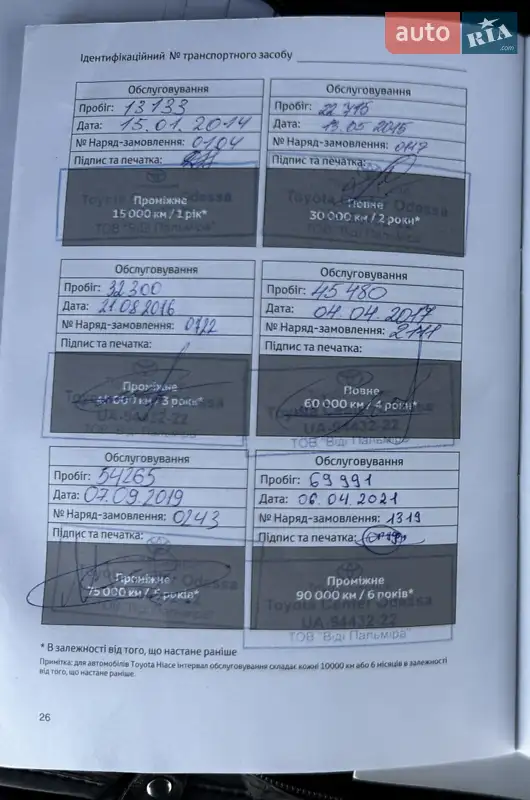 auto RIA.com
Ідентифікаційний № транспортного засобу
Обслуговування
Пробіг: 13133
Дата: 15.01.2014
№ Наряд-замовлення: 0104
Підпис та печатка:
Toyota Center Odessa
Проміжне
15 000 км / 1 рік*
ТОВ "Віді Пальміра"
Обслуговування
Пробіг: 22 715
Дата: 13.05 2015
№ Наряд-замовлення: 0117
Підпис та печатка:
Toyota Center Odessa
Повне
30 000 км / 2 роки*
ТОВ "Віді Пальміра"
Обслуговування
Пробіг: 32 300
Дата: 21.08 2016
№ Наряд-замовлення: 0122
Підпис та печатка:
Проміжне
45 000 км / 3 роки*
UA-94432-22
ТОВ "Віді Пальміра"
Обслуговування
Пробіг: 45 480
Дата: 04.04.2017
№ Наряд-замовлення: 2111
Підпис та печатка:
Повне
60 000 км / 4 роки*
UA-94432-22
ТОВ "Віді Пальміра"
Обслуговування
Пробіг: 54265
Дата: 07.09.2019
№ Наряд-замовлення: 0243
Підпис та печатка:
Проміжне
75 000 км / 5 років*
Обслуговування
Пробіг: 69 991
Дата: 06.04.2021
№ Наряд-замовлення: 1319
Підпис та печатка:
Проміжне
90 000 км / 6 років*
Toyota Center Odessa
UA-94432-22
ТОВ "Віді Пальміра"
* В залежності від того, що настане раніше
Примітка: для автомобілів Toyota Hiace інтервал обслуговування складає кожні 10000 км або 6 місяців в залежності
від того, що настане раніше.
26